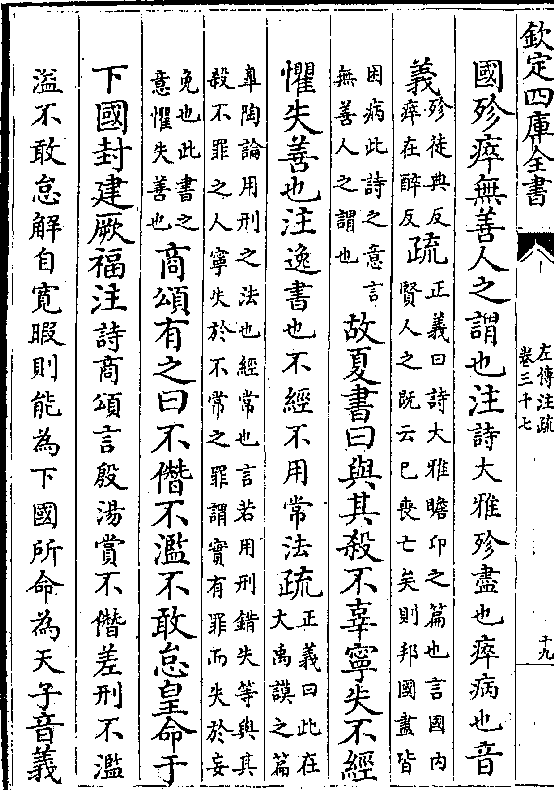 欽定四庫全書
左傳注疏
卷三十七
十九
國殄瘁無善人之謂也注詩大雅殄盡也瘁病也音
義
殄徒典反
瘁在醉反
疏
正義曰詩大雅瞻卬之篇也言國内
賢人之既云已喪亡矣則邦國盡皆
困病此詩之意言
無善人之謂也
故夏書曰與其殺不辜寧失不經
懼失善也注逸書也不經不用常法疏
正義曰此在
大禹謨之篇
皐陶論用刑之法也經常也言若用刑錯失等與其
殺不罪之人寧失於不常之罪謂實有罪而失於妄
免也此書之
意懼失善也
商頌有之曰不僭不濫不敢怠皇命于
下國封建厥福注詩商頌言殷湯賞不僭差刑不濫
溢不敢怠解自寛暇則能為下國所命為天子音義